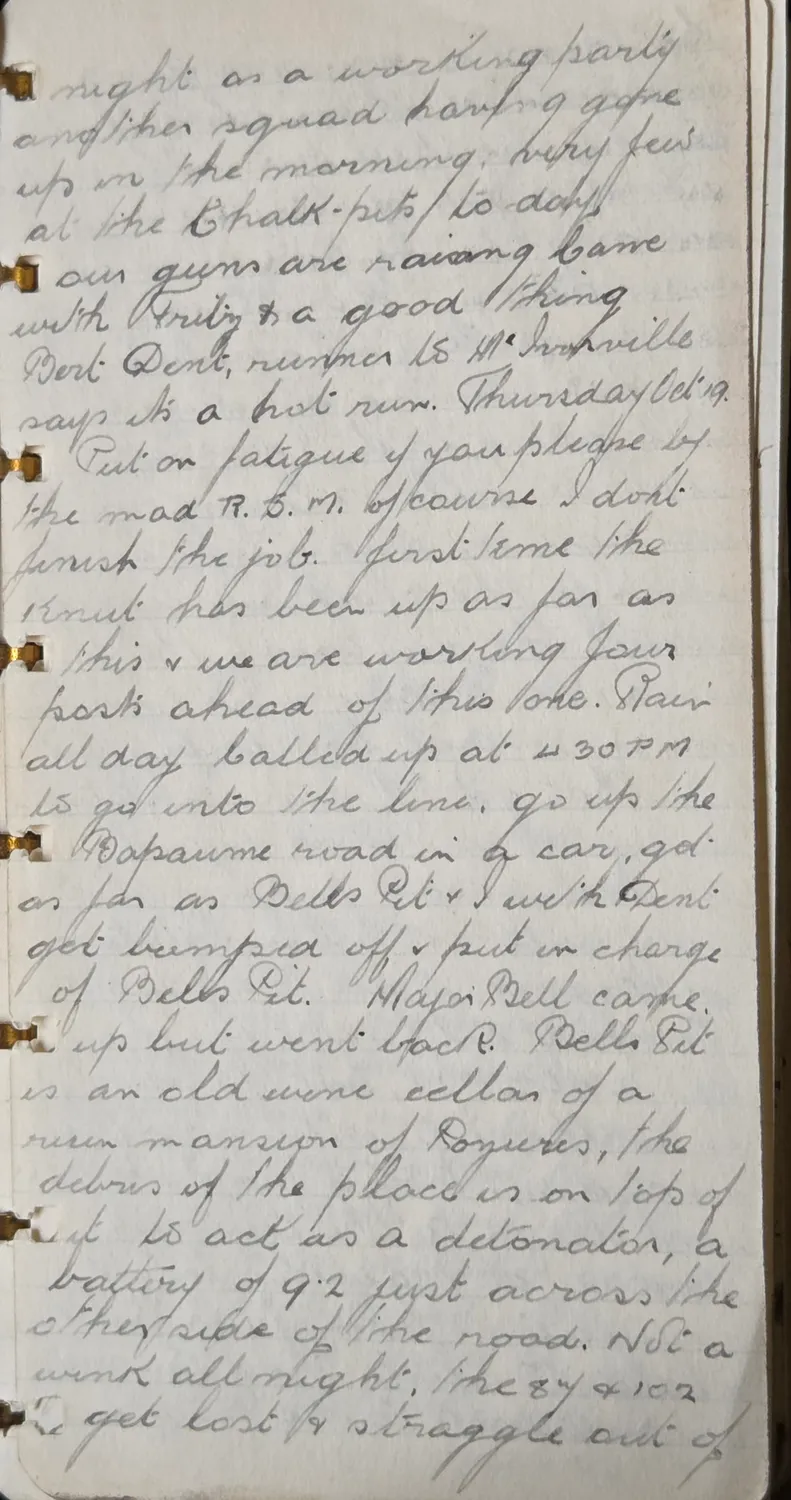 night as a working party
another squad having gone
up in the morning, very few
at the Chalk-pits to day
our guns are raising Cane
with Fritz & a good thing
Bert Dent, runner to Mc Ivorville
says its a hot run. Thursday Oct 19.
Put on fatigue if you please by
the mad R.S.M. of course I dont
finish the job. first time the
Knut has been up as far as
this & we are working four
posts ahead of this one. Rain
all day Called up at 4 30 PM
to go into the line. go up the
Bapaume road in a car, get
as far as Bells Pit & I with Dent
get bumped off & put in charge
of Bells Pit. Major Bell came
up but went back. Bells Pit
is an old wine cellar of a
ruin mansion of Pozieres, the
debris of the place is on top of
it to act as a detonator, a
battery of 9.2 just across the
other side of the road. Not a
wink all night, the 87 & 102
get lost & straggle out of